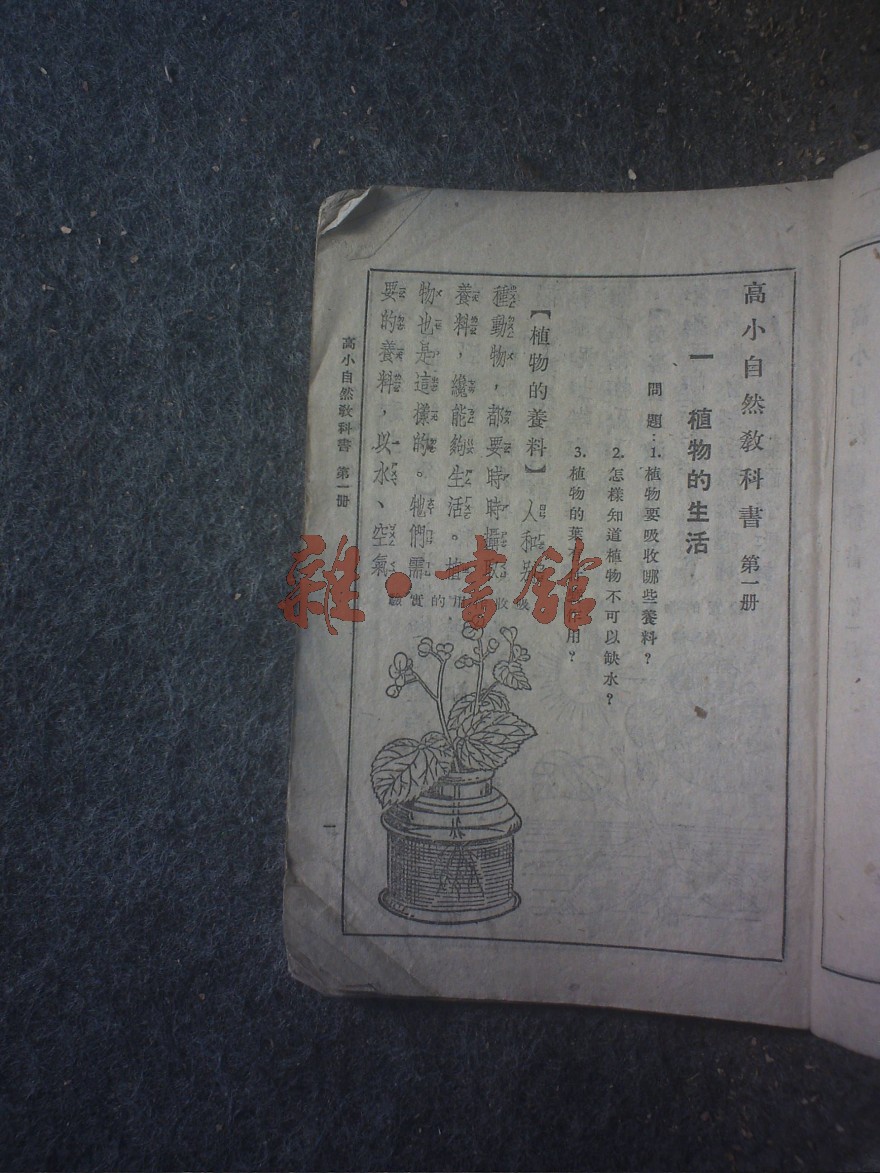 高小自然教科書 第一册
一 植物的生活
問題：1. 植物要吸收哪些養料？
2. 怎樣知道植物不可以缺水？
3. 植物的葉有 用？
【植物的養料】 人和別
種動物，都要時時攝取
養料，纔能夠生活。植
物也是這樣的。牠們需
要的養料，以水、空氣
吸收 用的實驗
高小自然教科書 第一册
一
雜·書館